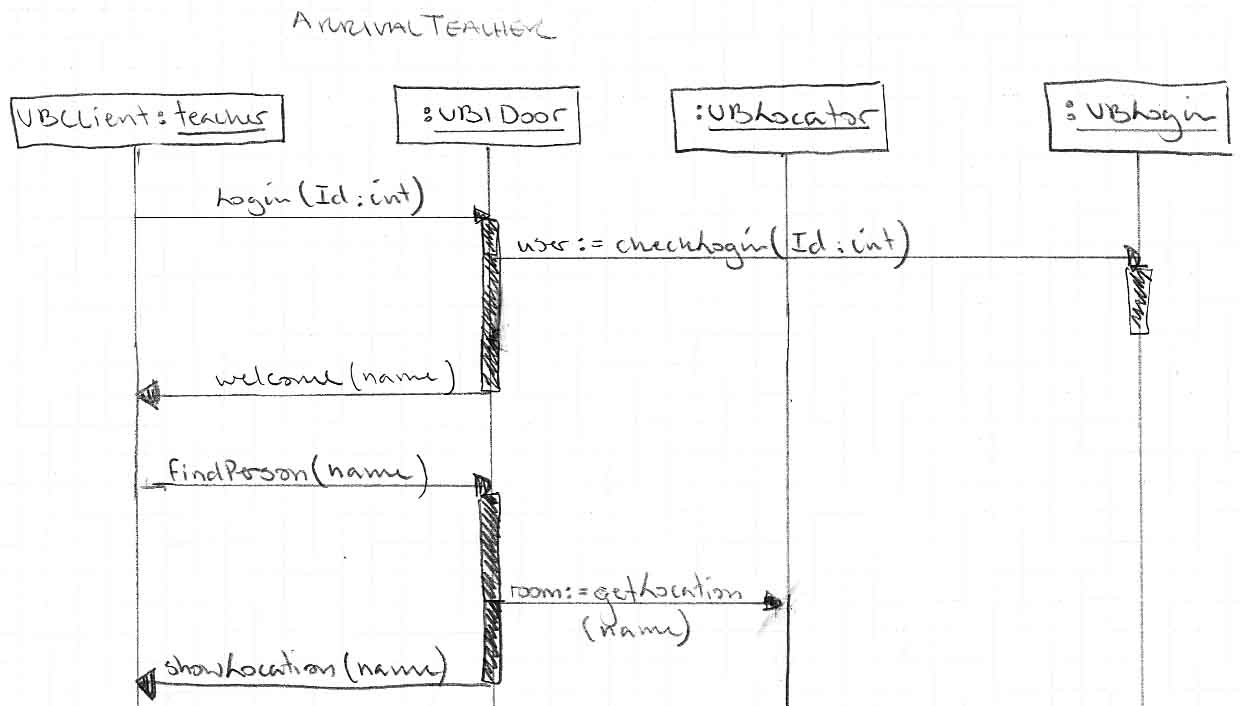 ARRIVALTEACHER
UBClient:teacher
:UBIDoor
:UBLocator
:UBLogin
Login(Id:int)
user:=checkLogin(Id:int)
welcome(name)
findPerson(name)
room:=getLocation
(name)
showLocation(name)